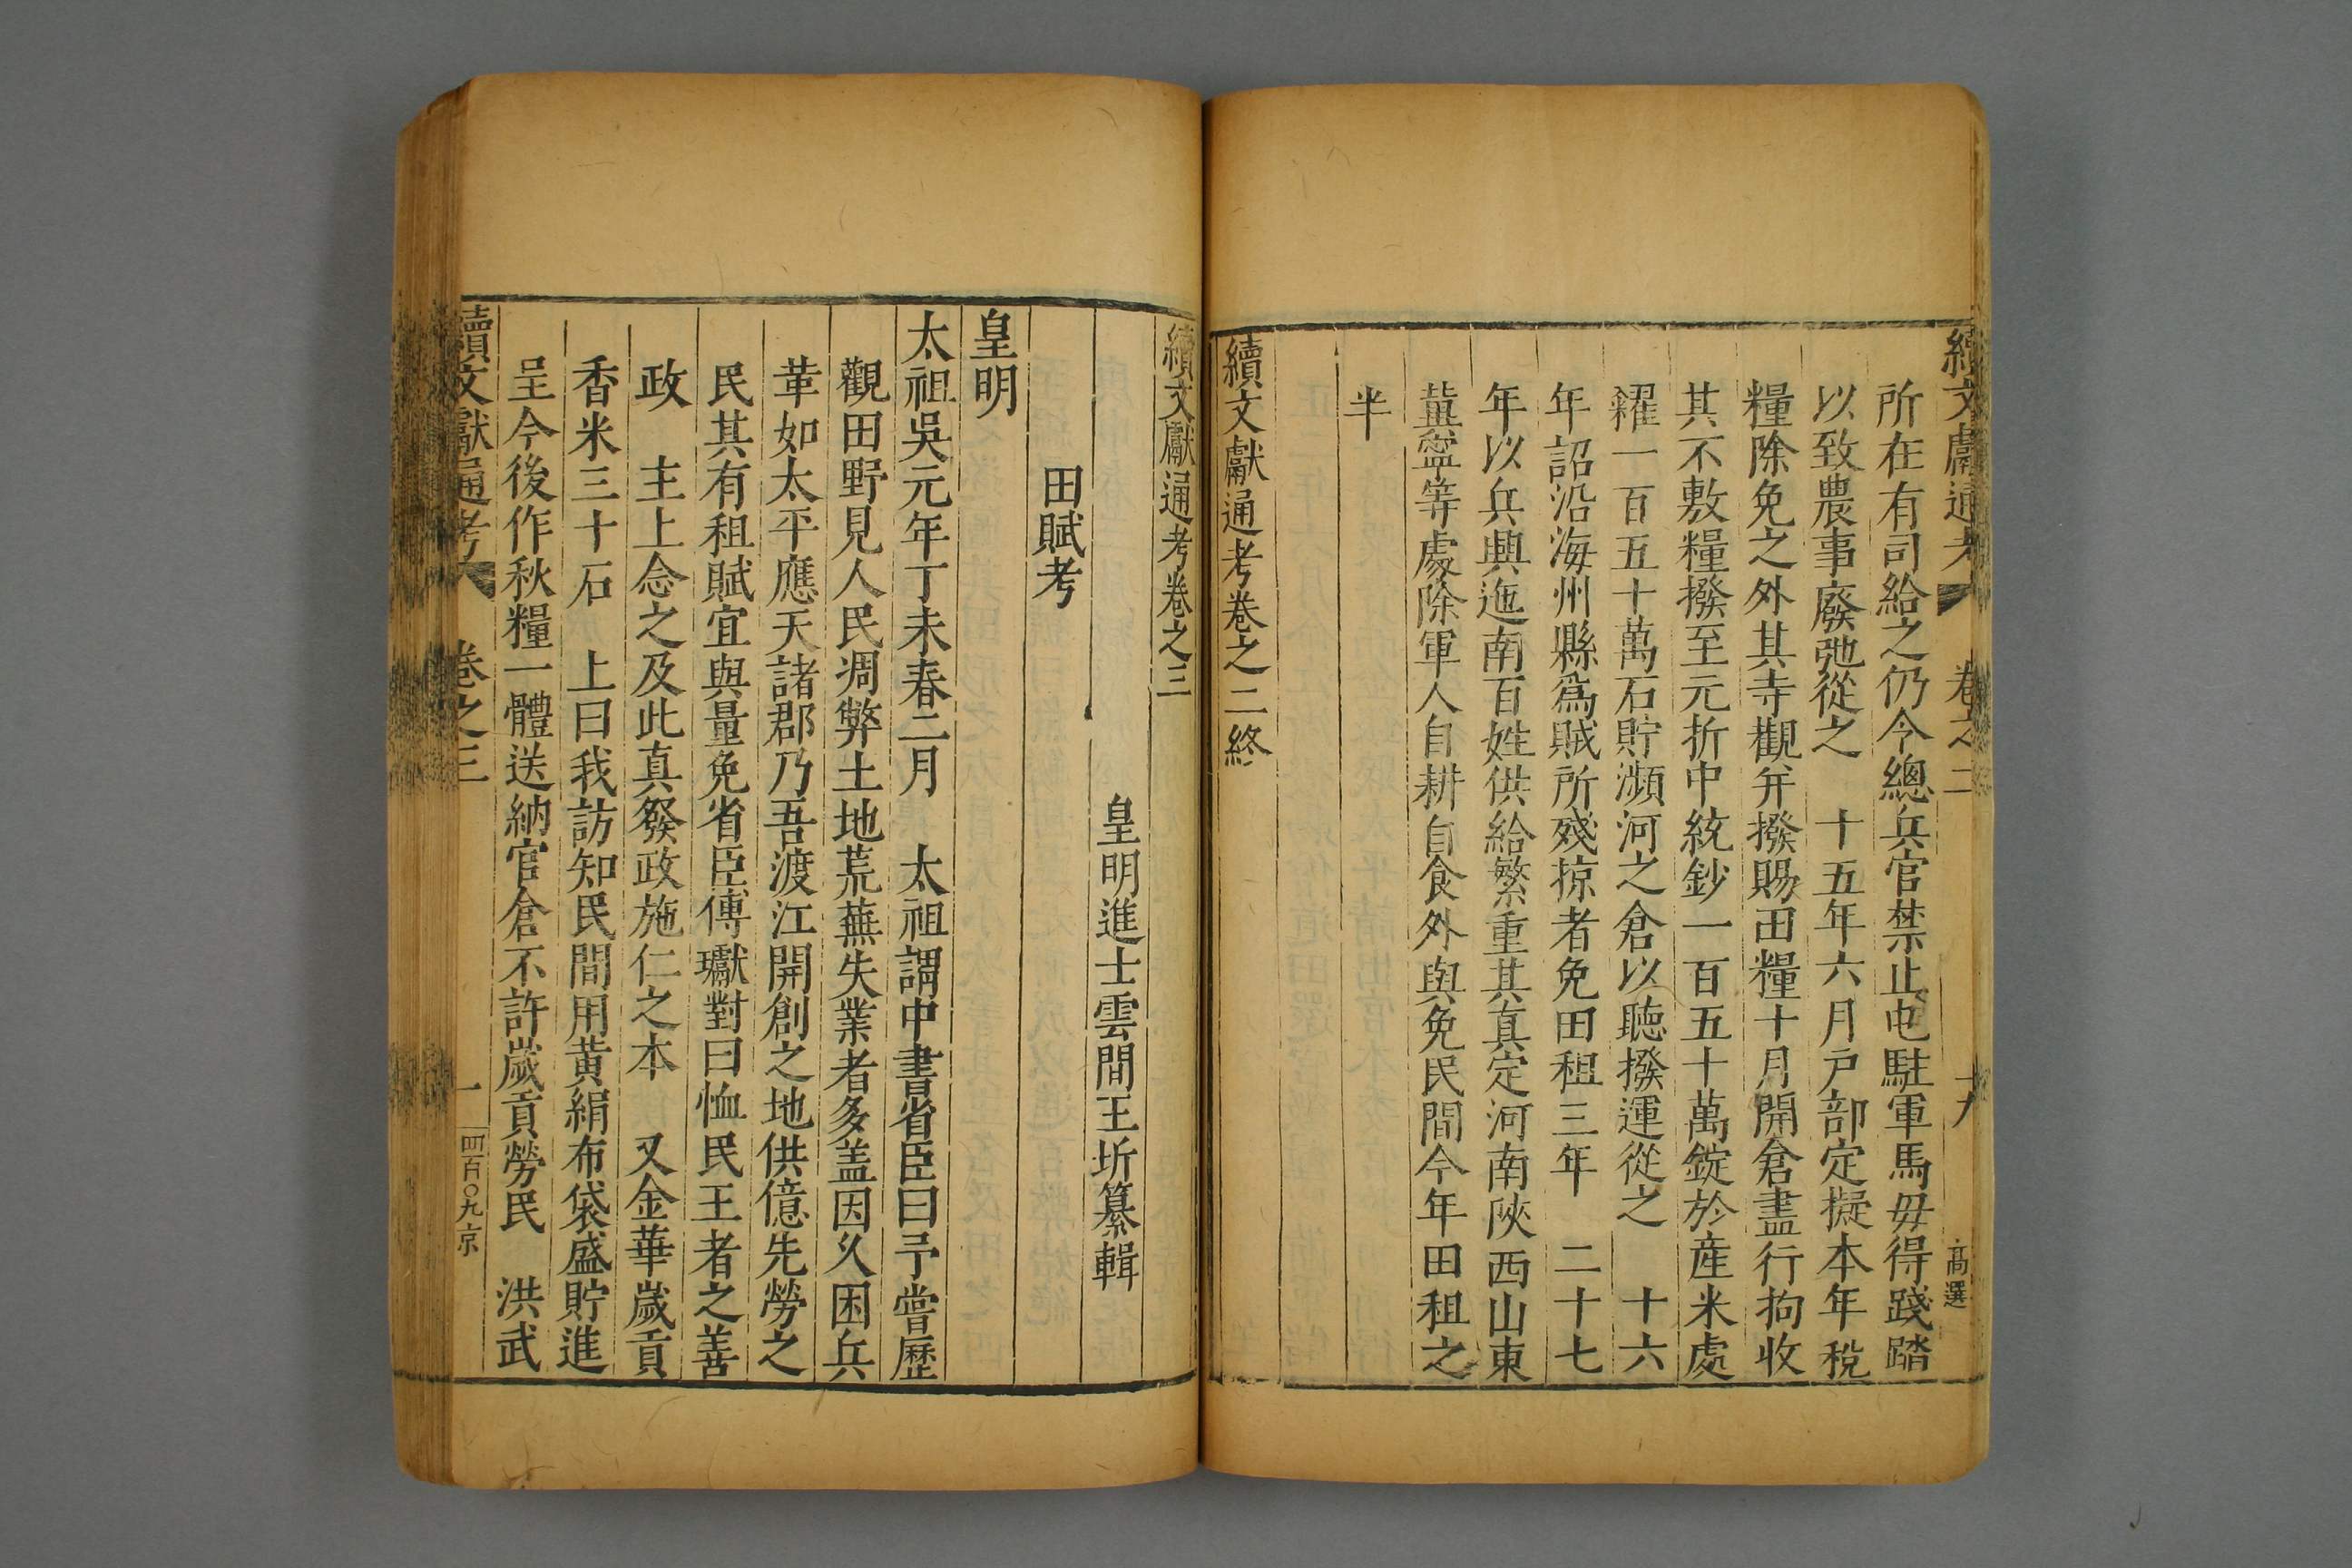 續文獻通考 卷之二 十九 高選
所在有司給之仍令總兵官禁止屯駐軍馬毋得踐踏
以致農事廢弛從之 十五年六月戸部定擬本年稅
糧除免之外其寺觀幷撥賜田糧十月開倉盡行拘收
其不敷糧撥至元折中統鈔一百五十萬錠於産米處
糴一百五十萬石貯瀕河之倉以聽撥運從之 十六
年詔沿海州縣爲賊所殘掠者免田租三年 二十七
年以兵興迤南百姓供給繁重其真定河南陝西山東
冀寧等處除軍人自耕自食外與免民間今年田租之
半
續文獻通考卷之二終
續文獻通考卷之三
皇明進士雲間王圻纂輯
田賦考
皇明
太祖吳元年丁未春二月 太祖謂中書省臣曰予嘗歷
觀田野見人民凋弊土地荒蕪失業者多盖因久困兵
革如太平應天諸郡乃吾渡江開創之地供億先勞之
民其有租賦宜與量免省臣傅瓛對曰恤民王者之善
政 主上念之及此真發政施仁之本 又金華歲貢
香米三十石 上曰我訪知民間用黄絹布袋盛貯進
呈今後作秋糧一體送納官倉不許歲貢勞民 洪武
續文獻通考 卷之三 一 四百〇九 京